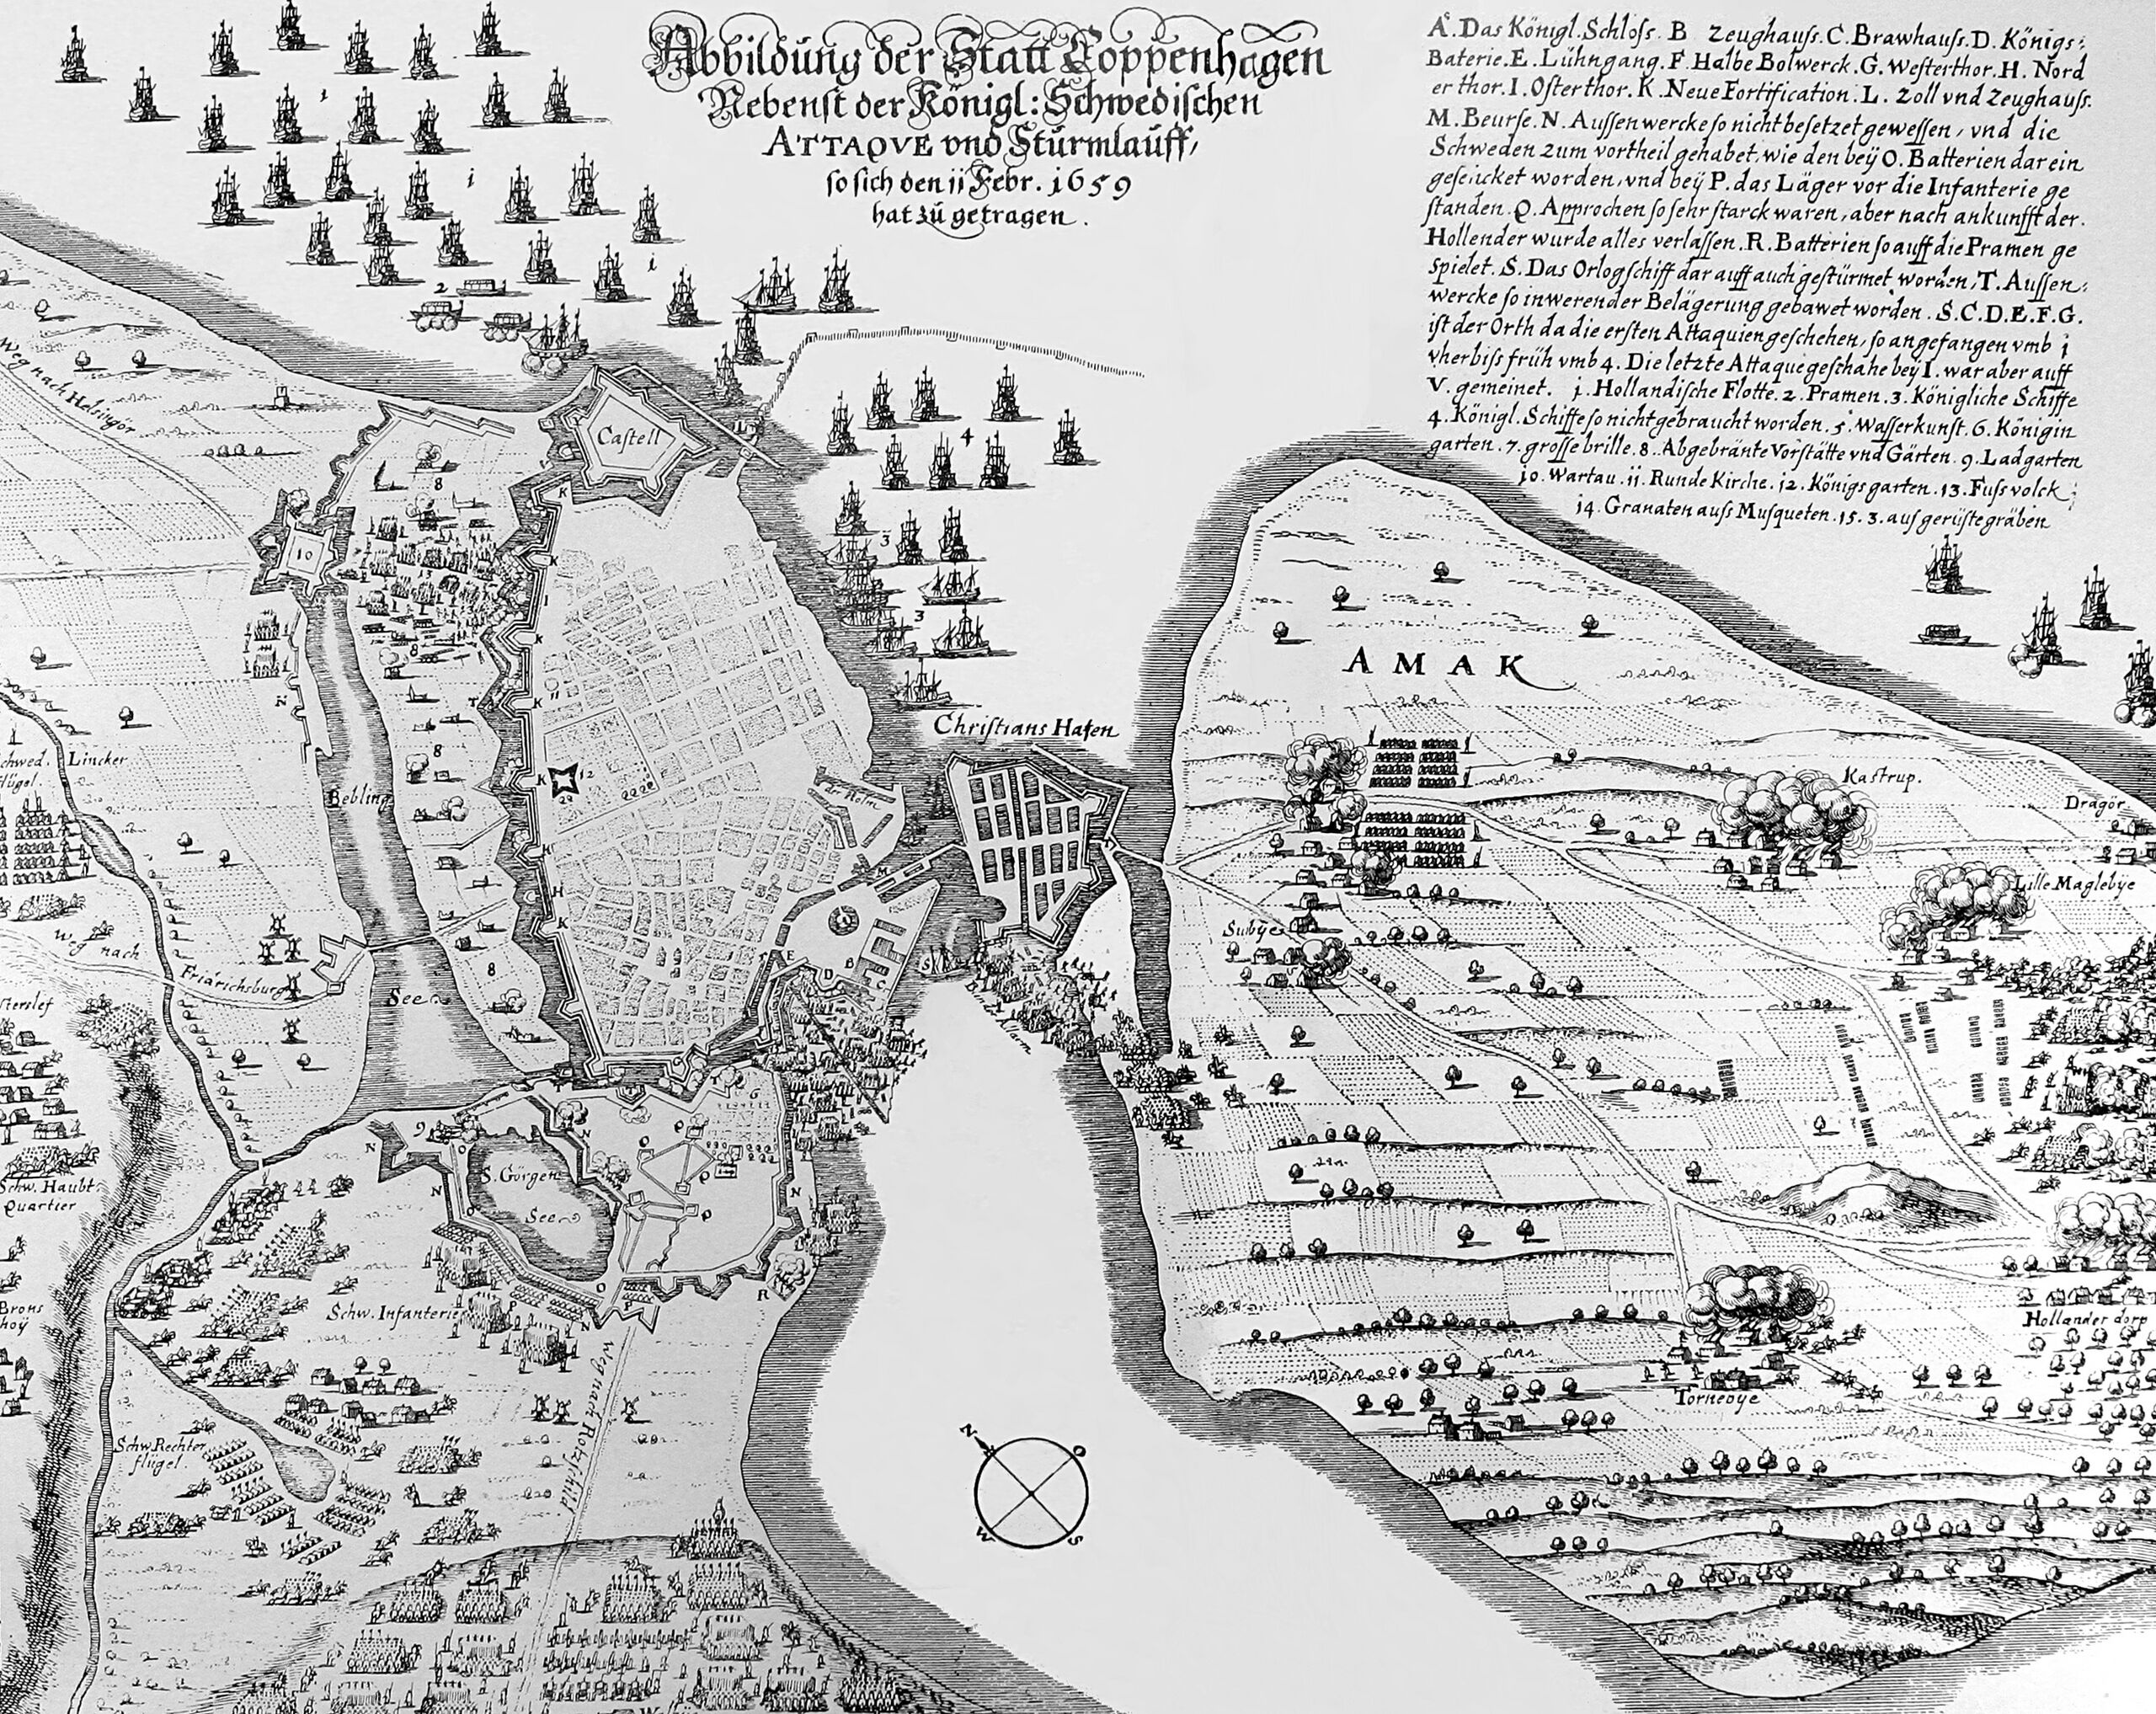 Abbildung der Statt Coppenhagen
Nebenst der Königl: Schwedischen
ATTAQVE vnd Sturmlauff,
so sich den ii Febr. i659
hat zu getragen.
A. Das Königl. Schloss. B Zeughauss. C. Brawhauss. D. Königs:
Baterie. E. Lühngang. F. Halbe Bolwerck. G. Westerthor. H. Nord
er thor. I. Osterthor. K. Neue Fortification. L. Zoll vnd Zeughauss.
M. Beurse. N. Aussenwercke so nicht besetzet gewessen, vnd die
Schweden zum vortheil gehabet, wie den beÿ O. Batterien darein
gesencket worden, vnd beÿ P. das Läger vor die Infanterie ge
standen. Q. Approchen so sehr starck waren, aber nach ankunfft der.
Hollender wurde alles verlassen. R. Batterien so auff die Pramen ge
spielet. S. Das Orlogschiff dar auff auch gestürmet worden, T. Aussen:
wercke so in werender Belägerung gebawet worden. S. C. D. E. F. G.
ist der Orth da die ersten Attaquien geschehen, so angefangen vmb i
vher biss früh vmb 4. Die letzte Attaque geschahe beÿ I. war aber auff
V. gemeinet. i. Hollandische Flotte. 2. Pramen. 3. Königliche Schiffe
4. Königl. Schiffe so nicht gebraucht worden. 5. Wasserkunst. 6. Königin
garten. 7. grosse brille. 8. Abgebränte Vorstätte vnd Gärten. 9. Ladgarten
i0. Wartau. ii. Runde Kirche. i2. Königs garten. i3. Fuss volck
i4. Granaten auss Musqueten. i5. 3. auf gerüste gräben
i
i
i
2
Q
Weg nach Helsingör
Castell
4
3
3
8
K
10
13
K
I
K
8
K
T
11
N
AMAK
Christians Hafen
8
K
12
Kastrup.
Dragör
Lincker
Bebling
Holm
K
H
K
M
Lille Maglebÿe
Subÿe
Weg nach
Friärichsburg
8
E
D
B
C
S
See
Allarm
6
9
N
O
N
S. Görgen
See
N
N
Q
Q
Q
Q
Schw. Haubt
Quartier
Schw. Infanterie
P
O
P
R
N
Hollander dorp
Torneoÿe
Weg nach Rotzschild
Schw. Rechter
flügel.
N
O
W
S